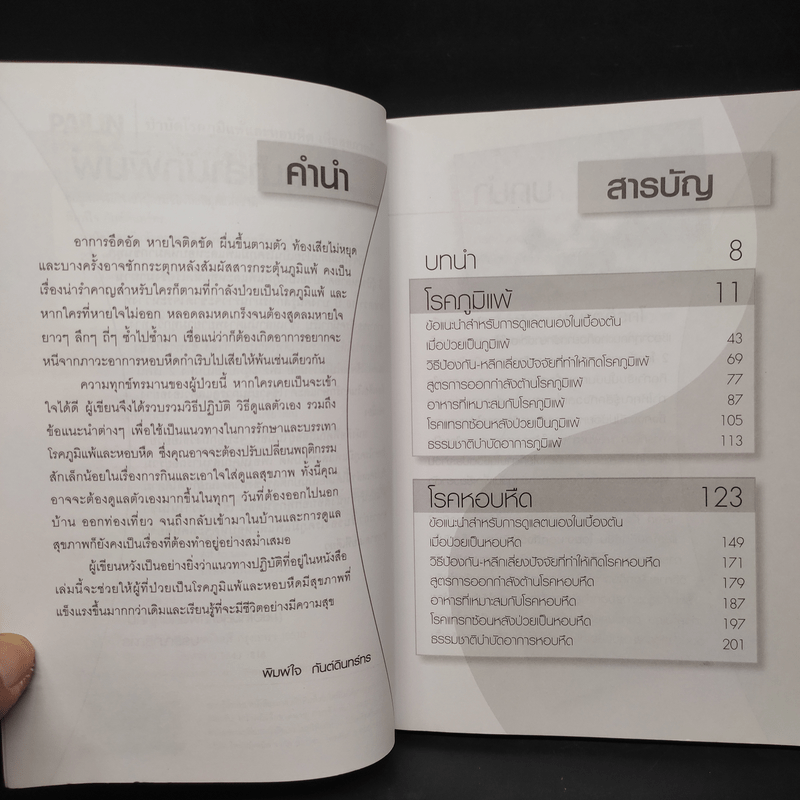 คำนำ
อาการอึดอัด หายใจติดขัด ผื่นขึ้นตามตัว ท้องเสียไม่หยุด
และบางครั้งอาจชักกระตุกหลังสัมผัสสารกระตุ้นภูมิแพ้ คงเป็น
เรื่องน่ารำคาญสำหรับใครก็ตามที่กำลังป่วยเป็นโรคภูมิแพ้ และ
หากใครที่หายใจไม่ออก หลอดลมหดเกร็งจนต้องสูดลมหายใจ
ยาวๆ ลึกๆ ถี่ๆ ซ้ำไปซ้ำมา เชื่อแน่ว่าก็ต้องเกิดอาการอยากจะ
หนีจากภาวะอาการหอบหืดกำเริบไปเสียให้พ้นเช่นเดียวกัน
ความทุกข์ทรมานของผู้ป่วยนี้ หากใครเคยเป็นจะเข้า
ใจได้ดี ผู้เขียนจึงได้รวบรวมวิธีปฏิบัติ วิธีดูแลตัวเอง รวมถึง
ข้อแนะนำต่างๆ เพื่อใช้เป็นแนวทางในการรักษาและบรรเทา
โรคภูมิแพ้และหอบหืด ซึ่งคุณอาจจะต้องปรับเปลี่ยนพฤติกรรม
สักเล็กน้อยในเรื่องการกินและเอาใจใส่ดูแลสุขภาพ ทั้งนี้คุณ
อาจจะต้องดูแลตัวเองมากขึ้นในทุกๆ วันที่ต้องออกไปนอก
บ้าน ออกท่องเที่ยว จนถึงกลับเข้ามาในบ้านและการดูแล
สุขภาพก็ยังคงเป็นเรื่องที่ต้องทำอยู่อย่างสม่ำเสมอ
ผู้เขียนหวังเป็นอย่างยิ่งว่าแนวทางปฏิบัติที่อยู่ในหนังสือ
เล่มนี้จะช่วยให้ผู้ที่ป่วยเป็นโรคภูมิแพ้และหอบหืดมีสุขภาพที่
แข็งแรงขึ้นมากกว่าเดิมและเรียนรู้ที่จะมีชีวิตอย่างมีความสุข
พิมพ์ใจ
สารบัญ
บทนำ 8
โรคภูมิแพ้ 11
ข้อแนะนำสำหรับการดูแลตนเองในเบื้องต้น
เมื่อป่วยเป็นภูมิแพ้ 43
วิธีป้องกัน-หลีกเลี่ยงปัจจัยที่ทำให้เกิดโรคภูมิแพ้ 69
สูตรการออกกำลังต้านโรคภูมิแพ้ 77
อาหารที่เหมาะสมกับโรคภูมิแพ้ 87
โรคแทรกซ้อนหลังป่วยเป็นภูมิแพ้ 105
ธรรมชาติบำบัดอาการภูมิแพ้ 113
โรคหอบหืด 123
ข้อแนะนำสำหรับการดูแลตนเองในเบื้องต้น
เมื่อป่วยเป็นหอบหืด 149
วิธีป้องกัน-หลีกเลี่ยงปัจจัยที่ทำให้เกิดโรคหอบหืด 171
สูตรการออกกำลังต้านโรคหอบหืด 179
อาหารที่เหมาะสมกับโรคหอบหืด 187
โรคแทรกซ้อนหลังป่วยเป็นโรคหอบหืด 197
ธรรมชาติบำบัดอาการหอบหืด 201